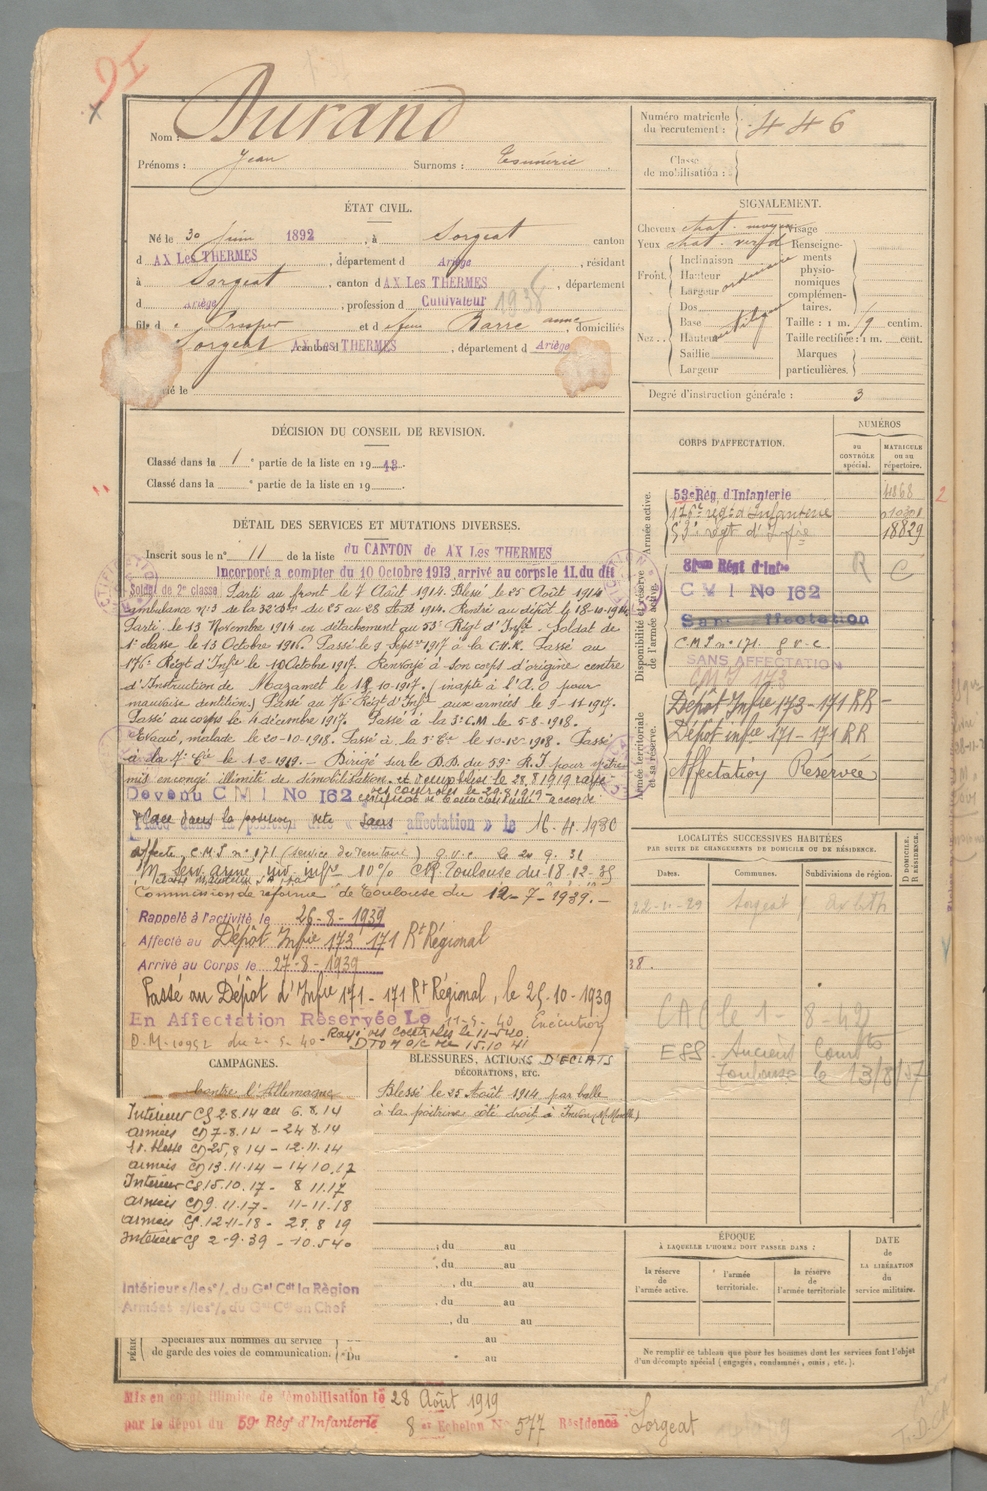 Nom : Durand
Prénoms : Jean Surnoms :
ÉTAT CIVIL.
Né le 30 Juin 1892, à Sorgeat canton
d AX Les THERMES, département d Ariège, résidant
à Sorgeat, canton d AX Les THERMES, département
d Ariège, profession d Cultivateur 1938
fils de Prosper et de feu Barre anne, domiciliés
Sorgeat canton d AX Les THERMES, département d Ariège
ié le
DÉCISION DU CONSEIL DE REVISION.
Classé dans la 1e partie de la liste en 1913.
Classé dans la e partie de la liste en 19
DÉTAIL DES SERVICES ET MUTATIONS DIVERSES.
Inscrit sous le n° 11 de la liste du CANTON de AX Les THERMES
Incorporé a compter du 10 Octobre 1913, arrivé au corps le 11, du dit
Soldat de 2e classe Parti au front le 7 Août 1914. Blessé le 25 Août 1914
ambulance n° 3 de la 32e Don du 25 au 28 Août 1914. Rentré au dépôt le 18-10-1914
Parti le 13 Novembre 1914 en détachement au 53e Régt d'Inft. Soldat de
1e classe le 13 Octobre 1916. Passé le 9 Septre 1917 à la C.H.R. Passé au
176e Régt d'Inft le 10 Octobre 1917. Renvoyé à son corps d'origine centre
d'Instruction de Mazamet le 12.10.1917. (inapte à l'A.O pour
mauvaise dentition.) Passé au 96e Régt d'Inft aux armées le 9-11-1917.
Passé au corps le 4 décembre 1917. Passé à la 3e C.M le 5-8-1918.
Evacué, malade le 20-10-1918. Passé à la 5e Cie le 10-12-1918. Passé
à la 7e Cie le 1-2-1919. Dirigé sur le D.D. du 59e R.I pour y être
mis en congé illimité de démobilisation
certificat de bonne conduite accordé
Devenu C M I No 162
Place dans la position dite « Sans affectation » le 16-4-1930
affecté C.M.I n° 171 (service du Territoire) g.v.c le 20 9. 31
10% CR Toulouse du 18-12-35
Commission de réforme de Toulouse du 12-7-1939.
Rappelé à l'activité le 26-8-1939
Affecté au Dépôt Infie 173 171 Rt Régional
Arrivé au Corps le 27-8-1939
Passé au Dépôt d'Infie 171 - 171 Rt Régional, le 25-10-1939
En Affectation Réservée Le 11-5-40 Exécution
D.M. 10952 du 2-5-40 - Rayé des contrôles le 11-5-40.
15.10 41
CAMPAGNES.
Contre l'Allemagne
Intérieur CS 2.8.14 au 6.8.14
armées CD 7-8.14 - 24 8.14
tr. blessé CD 25.8 14 - 12.11.14
armées CD 13.11.14 - 14 10.17
Intérieur CS 15.10.17 - 8 11.17
armées CD 9.11.17 - 11-11.18
armées CS. 12-11-18 - 28. 8 19
Intérieur CS 2-9.39 - 10.5 40
Intérieur s/les o/. du Gal Cdt la Région
Armées s/les o/. du Gal Cdt en Chef
Spéciales aux hommes du service
de garde des voies de communication. Du
BLESSURES, ACTIONS D'ECLATS
DÉCORATIONS, ETC.
Blessé le 25 Août 1914 par balle
à la poitrine côté droit
, du au
, du au
, du au
, du au
, du au
au
au
Mis en congé illimité de démobilisation le 28 Août 1919
par le dépôt du 59e Régt d'Infanterie 8 e Echelon No 577 Résidence Sorgeat
Numéro matricule
du recrutement : 446
Classe
de mobilisation :
SIGNALEMENT.
Cheveux chat. moyen Visage
Yeux chat. verd Renseigne-
ments
physio-
nomiques
complémen-
taires.
Front. Inclinaison
Hauteur
Largeur ordinaire
Nez. Dos
Base
Hauteur
Saillie
Largeur
Taille : 1 m. 79 centim.
Taille rectifiée : 1 m. cent.
Marques
particulières.
Degré d'instruction générale : 3
CORPS D'AFFECTATION.
NUMÉROS
au CONTRÔLE spécial.
MATRICULE ou au répertoire.
Armée active.
53e Rég. d'Infanterie 4868
176e régt d'Infanterie
53e régt d'Infie 18829
Disponibilité et réserve de l'armée active.
R C
C M I No 162
Sans affectation
C.M.I n° 171. g.v.c.
SANS AFFECTATION
CMI 173
Armée territoriale et sa réserve.
Dépôt Infie 173-171 RR
Dépôt infie 171-171 RR
Affectation Réservée
LOCALITÉS SUCCESSIVES HABITÉES
PAR SUITE DE CHANGEMENTS DE DOMICILE OU DE RÉSIDENCE.
Dates. Communes. Subdivisions de région. D DOMICILE. R RÉSIDENCE.
Sorgeat
38.
le 1- 8-42
Anciens Combts
Toulouse le 13/8/57
ÉPOQUE
À LAQUELLE L'HOMME DOIT PASSER DANS :
la réserve de l'armée active.
l'armée territoriale.
la réserve de l'armée territoriale
DATE de LA LIBÉRATION du service militaire.
Ne remplir ce tableau que pour les hommes dont les services font l'objet
d'un décompte spécial (engagés, condamnés, omis, etc.).